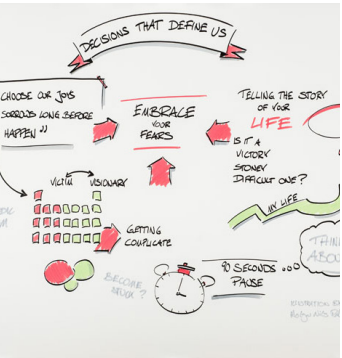 DECISIONS THAT DEFINE US
CHOOSE OUR JOYS
SORROWS LONG BEFORE
HAPPEN"
EMBRACE
YOUR
FEARS
TELLING THE STORY
OF YOUR
LIFE
IS IT A
VICTORY
STONEY
DIFFICULT ONE?
MY LIFE
VICTIM
VISIONARY
GETTING
COMPLICATE
BECOME
90 SECONDS ...
PAUSE
THINK
ABOU